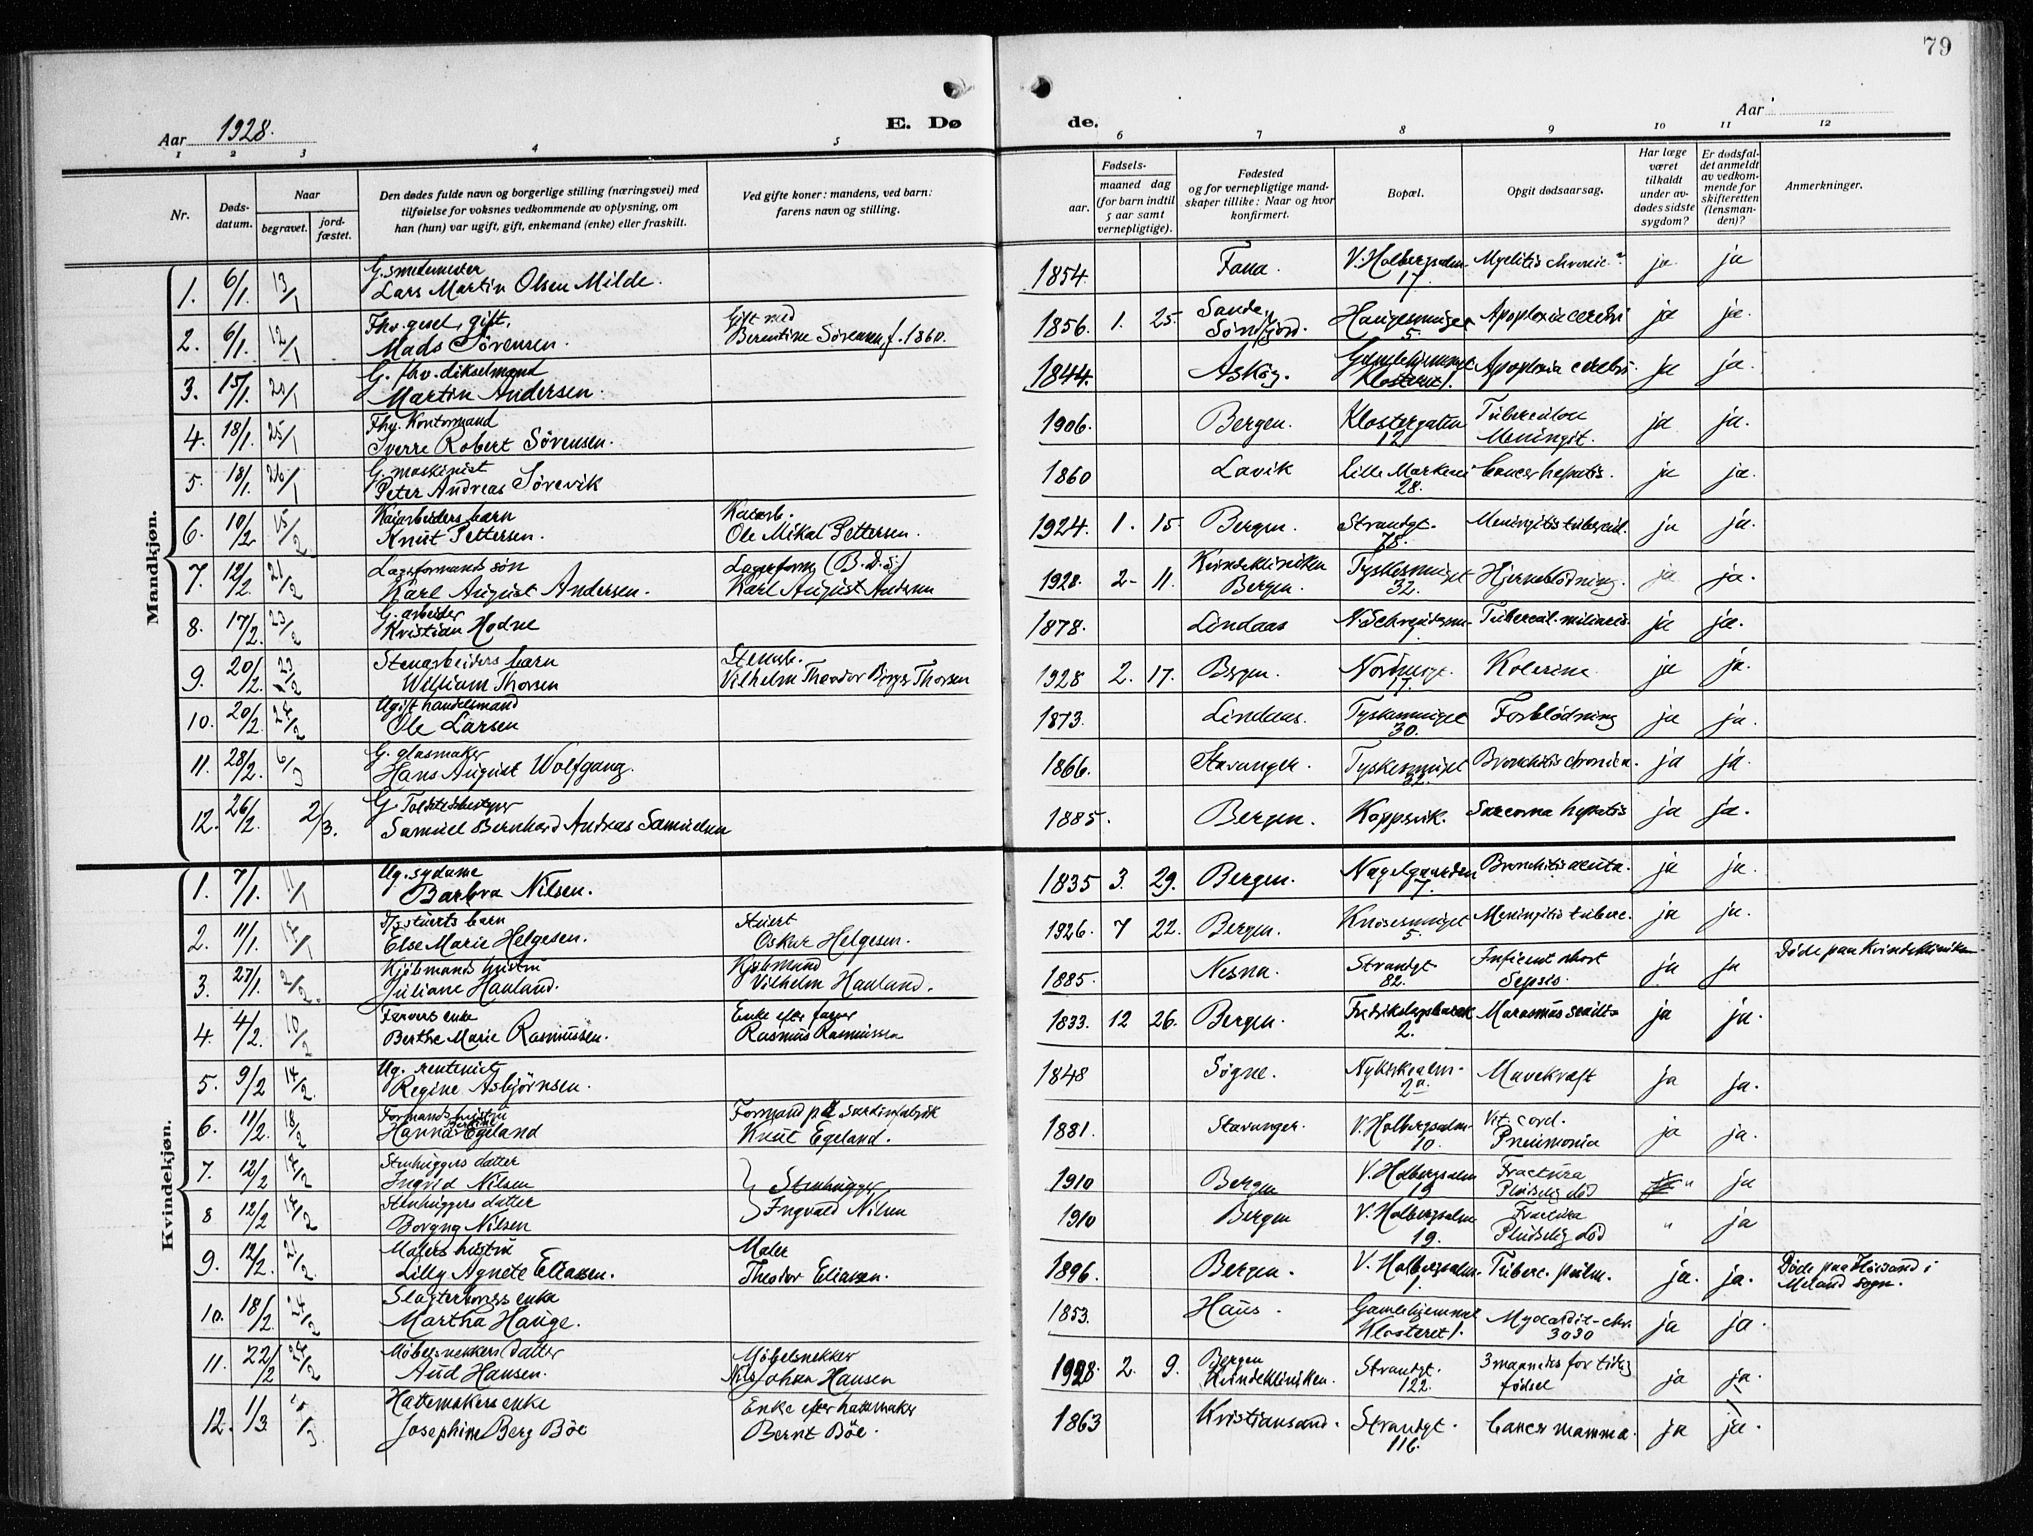 79
Aar 1928.
E. Dø de.
Aar
1 2 3 4 5 6 7 8 9 10 11 12
Nr.
Døds-datum.
Naar
begravet.
jord-fæstet.
Den dødes fulde navn og borgerlige stilling (næringsvei) med
tilføielse for voksnes vedkommende av oplysning, om
han (hun) var ugift, gift, enkemand (enke) eller fraskilt.
Ved gifte koner: mandens, ved barn:
farens navn og stilling.
Fødsels-
aar.
maaned dag
(for barn indtil
5 aar samt
vernepligtige).
Fødested
og for vernepligtige mand-
skaper tillike: Naar og hvor
konfirmert.
Bopæl.
Opgit dødsaarsag.
Har læge
været
tilkaldt
under av-
dødes sidste
sygdom?
Er dødsfal-
det anmeldt
av vedkom-
mende for
skifteretten
(lensman-
den)?
Anmerkninger.
Mandkjøn.
1. 6/1. 13/1 G. smedmester
Lars Martin Olsen Milde. 1854. Fana. V. Holbergsalm. 17. Myelitis chronic. ja ja
2. 6/1. 12/1 Fhv. gesel, gift,
Mads Sørensen. Gift med
Berentine Sørensen, f. 1860. 1856. 1. 25. Sande, Søndfjord. Haugesmuget 5. Apoplexia cerebri ja ja.
3. 15/1. 20/1 G. fhv. dikselmand
Martin Andersen. 1844. Askøy. Gamlehjemmet Klosteret 1. Apoplexia cerebri. ja ja.
4. 18/1. 25/1 Fhv. Kontormand
Sverre Robert Sørensen. 1906. Bergen. Klostergaten 12. Tuberculøs Meningit. ja ja.
5. 18/1. 26/1 G. maskinist
Peter Andreas Sørevik 1860 Lavik Lille Markevei 28. Cancer hepatis. ja ja.
6. 10/2 15/2 Kaiarbeiders barn
Knut Pettersen. Kaiarb.
Ole Mikal Pettersen. 1924. 1. 15. Bergen. Strandgt. 78. Meningitis tubercul. ja ja.
7. 12/2. 21/2 Lagerformands søn
Karl August Andersen. Lagerform. (B.D.S.)
Karl August Andersen 1928. 2- 11. Kvindeklinikken Bergen. Tyskesmuget 32. Hjerneblødning. ja ja.
8. 17/2. 23/2 G. arbeider
Kristian Hodne 1878. Lindaas Tubercul. miliaris. ja ja.
9. 20/2. 23/2 Stenarbeiders barn
William Thorsen Stenarb.
Vilhelm Theodor Birger Thorsen 1928 2. 17. Bergen. 17. Kolerine. ja ja.
10. 20/2. 24/2 Ugift handelsmand
Ole Larsen 1873. Lindaas. Tyskesmuget 30. Forblødning ja ja.
11. 28/2. 6/3 G. glasmaker
Hans August Wolfgang. 1866. Stavanger. Tyskesmuget 32. Bronchitis chronica. ja ja.
12. 26/2. 2/3. G.
Samuel Bernhard Andreas Samuelsen 1885. Bergen. Kappsvik. Sarcoma hepatis ja ja.
Kvindekjøn.
1. 7/1. 11/1 Ug. sydame
Barbra Nilsen. 1835 3. 29. Bergen. Nagelgaarden 7. Bronchitis acuta. ja ja.
2. 11/1. 14/1 Stuerts barn
Else Marie Helgesen. Stuert
Oskar Helgesen. 1926. 7 22. Bergen. Knøsesmuget 5. Meningitis tuberc. ja ja.
3. 27/1. 2/2. Kjøbmands hustru
Juliane Hauland. Kjøbmand
Vilhelm Hauland. 1885. Nesna. Strandgt. 82. Inficert abort Sepsis. ja ja Døde paa Kvindeklinikken
4. 4/2. 10/2 Farvers enke
Berthe Marie Rasmussen. Enke efter farver
Rasmus Rasmussen 1833. 12 26. Bergen. 2. Marasmus senilis ja ja.
5. 9/2 14/2. Ug. rentenist
Regine Asbjørnsen. 1848 Søgne. Nykirkealm. 2a. Mavekræft ja ja.
6. 11/2. 18/2 Formands hustru
Hanna Egeland Formand på sardinfabrik
Knut Egeland. 1881. Stavanger. V. Holbergsalm. 10. Vit. cord. Pneumonia ja ja.
7. 12/2 17/2 Stenhuggers datter
Ingrid Nilsen Stenhugger
Ingvald Nilsen 1910 Bergen V. Holbergsalm 19 Fractura Pludselig død " ja
8 12/2 17/2 Stenhuggers datter
Borgny Nilsen 1910 Bergen V. Holbergsalm 19. Fractura Pludselig død " ja
9. 12/2. 21/2. Malers hustru
Lilly Agnete Eliassen. Maler
Theodor Eliassen. 1896. Bergen. V. Holbergsalm. 1. Tuberc. pulm. ja. ja. Døde paa i
Meland sogn.
10. 18/2. 24/2 enke
Martha Hauge. 1853. Haus. Gamlehjemmet Klosteret 1. Myocardit. chr. 3030 ja ja.
11. 22/2 27/2 Møbelsnekkers datter
Aud Hansen. Møbelsnekker
Nils Johan Hansen 1928. 2. 9. Bergen Kvindeklinikken. Strandgt. 122. 3 maaneder for tidlig fødsel ja ja.
12. 1/3. Hattemakers enke
Josephine Berg Bøe Enke efter hattemaker
Bernt Bøe. 1863 Kristiansand. Strandgt. 116. Cancer mamma. ja ja.